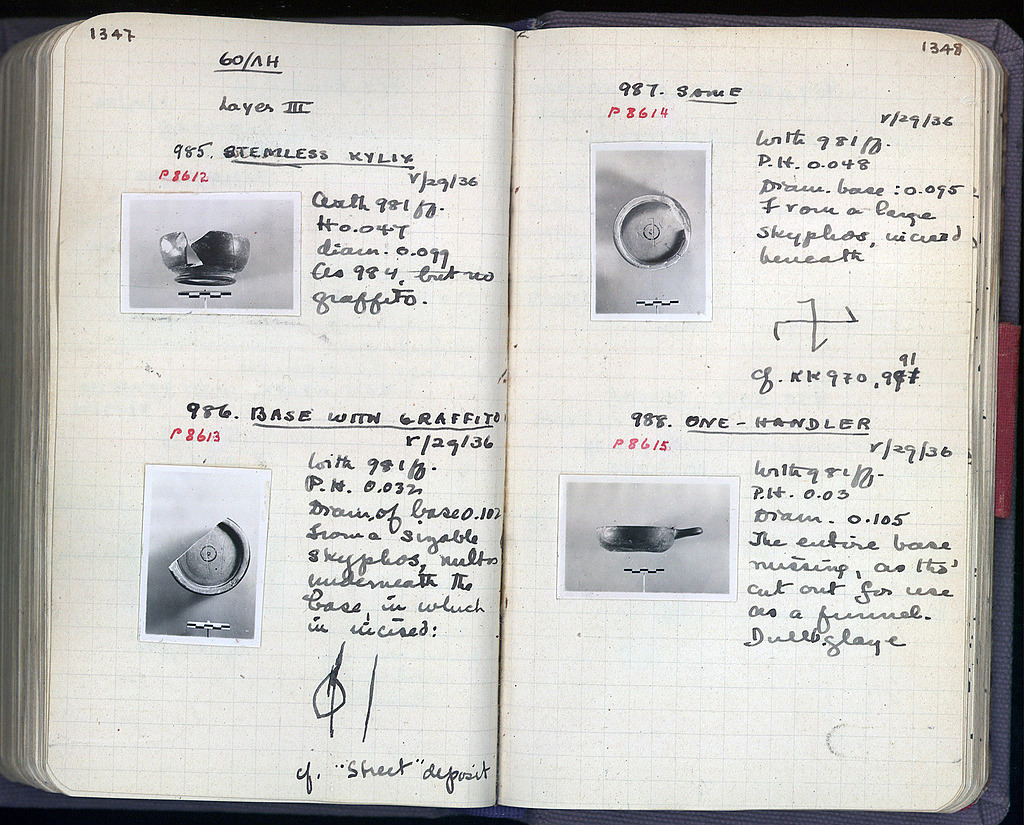 1347
60/ΛΗ
Layer III
985. STEMLESS KYLIX
P 8612
V/29/36
With 981 ff.
H 0.047
diam. 0.099
As 984, but no
graffito.
986. BASE WITH GRAFFITO
P 8613
V/29/36
With 981 ff.
P.H. 0.032
Diam. of base 0.102
From a sizable
skyphos,
underneath the
base, in which
is incised:
cf. "Street" deposit
1348
987. SAME
P 8614
V/29/36
With 981 ff.
P.H. 0.048
Diam. base: 0.095
From a large
skyphos, incised
beneath
cf. KK 970, 991
988. ONE-HANDLER
P 8615
V/29/36
With 981 ff.
P.H. 0.03
Diam. 0.105
The entire base
missing, as tho'
cut out for use
as a funnel.
Dull glaze